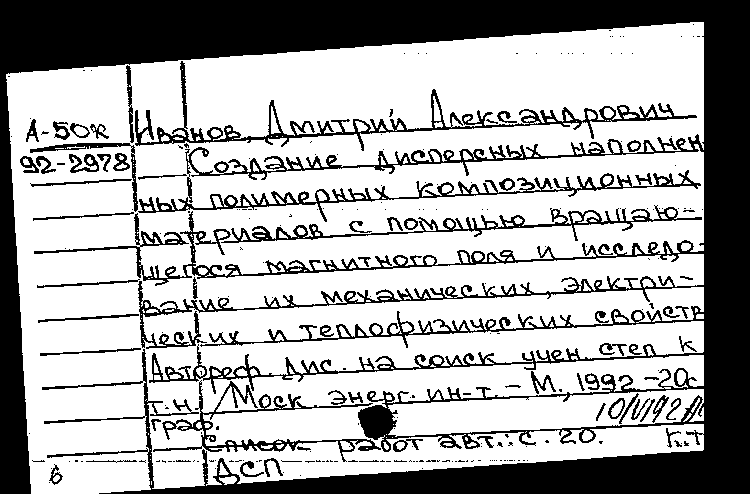 А-50к Иванов, Дмитрий Александрович
92-2978 Создание дисперсных наполнен
ных полимерных композиционных
материалов с помощью вращаю-
щегося магнитного поля и исследо-
вание их механических, электри-
ческих и теплофизических свойств
Автореф. дис. на соиск учен степ к
т.н. / Моск. энерг. ин-т. - М., 1992 - 20с
граф.
Список работ авт.: с. 20. к.т
6 ДСП